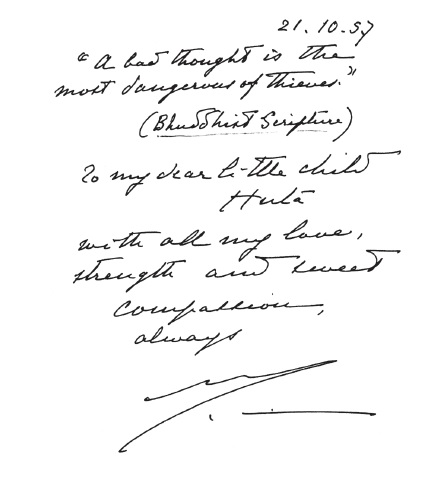 21.10.57
"A bad thought is the
most dangerous of thieves."
(Bhuddhist Scripture)
To my dear little child
Huta
with all my love,
strength and sweet
compassion,
always